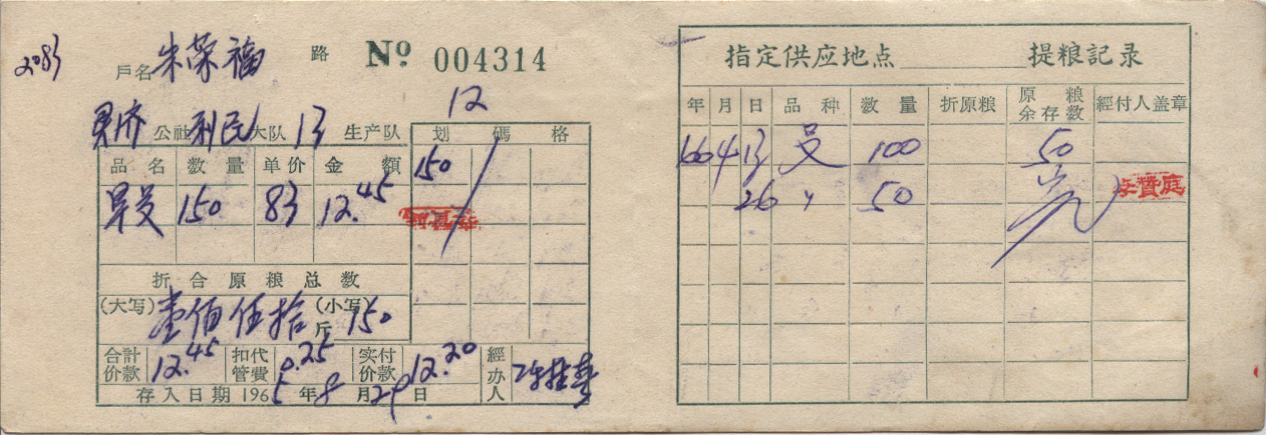 2083
戶名 朱荣福 路 Nº 004314
12
公社 利民 大队 13 生产队
划 碼 格
品名 数量 单价 金額
150
150 83 12.45
折合原粮总数
(大写) 壹佰伍拾 (小写) 150 斤
合計价款 12.45 扣代管費 0.25 实付价款 12.20 經办人
存入日期 1965年8月29日
指定供应地点 提粮記录
年 月 日 品种 数量 折原粮 原粮余存数 經付人盖章
66 4 13 100 50
26 〃 50 完